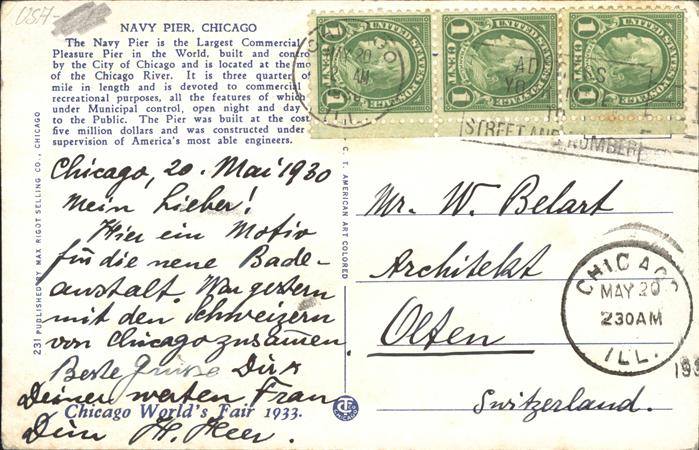 USA-
NAVY PIER, CHICAGO
The Navy Pier is the Largest Commercial
Pleasure Pier in the World, built and contro
by the City of Chicago and is located at the mo
of the Chicago River. It is three quarter of
mile in length and is devoted to commercial
recreational purposes, all the features of which
under Municipal control, open night and day
to the Public. The Pier was built at the cost
five million dollars and was constructed under
supervision of America's most able engineers.
Chicago, 20. Mai 1930
Mein Lieber!
Hier ein Motiv
für die neue Bade-
anstalt. War gestern
mit den Schweizern
von Chicago zusammen.
Beste Grüsse Dir &
Deiner werten Frau
Chicago World's Fair 1933.
Dein H. Heer.
231 PUBLISHED BY MAX RIGOT SELLING CO., CHICAGO
C. T. AMERICAN ART COLORED
UNITED STATES POSTAGE
1 CENT 1
UNITED STATES POSTAGE
1 CENT 1
UNITED STATES POSTAGE
1 CENT 1
MAY 20
AM
STREET AND NUMBER
Mr. W. Belart
Architekt
Olten
Switzerland.
CHICAGO
MAY 20
230AM
ILL.
193